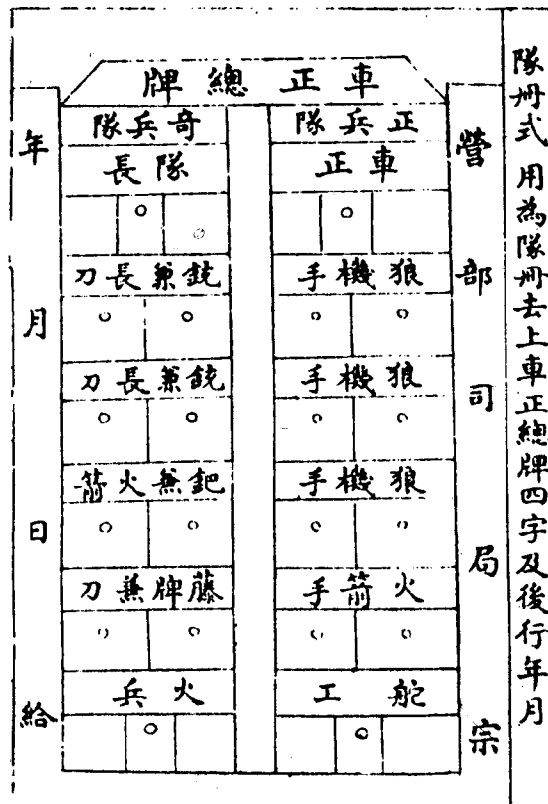 隊冊式 用為隊冊去上車正總牌四字及後行年月
車正總牌
營部司局宗
正兵隊
車正
狼機手
狼機手
狼機手
火箭手
舵工
奇兵隊
隊長
銃兼長刀
銃兼長刀
鈀兼火箭
藤牌兼刀
火兵
年月日給